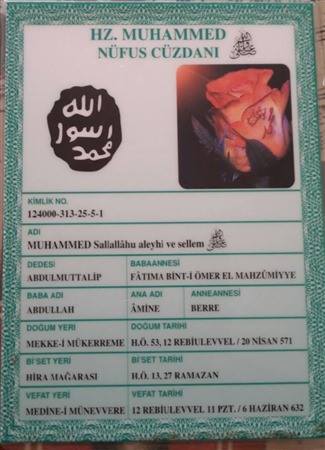 HZ. MUHAMMED
NÜFUS CÜZDANI ﷺ
الله
رسول
محمد
KİMLİK NO.
124000-313-25-5-1
ADI
MUHAMMED Sallallâhu aleyhi ve sellem ﷺ
DEDESİ BABAANNESİ
ABDULMUTTALİP FÂTIMA BİNT-İ ÖMER EL MAHZÛMİYYE
BABA ADI ANA ADI ANNEANNESİ
ABDULLAH ÂMİNE BERRE
DOĞUM YERİ DOĞUM TARİHİ
MEKKE-İ MÜKERREME H.Ö. 53, 12 REBİULEVVEL / 20 NİSAN 571
Bİ'SET YERİ Bİ'SET TARİHİ
HİRA MAĞARASI H.Ö. 13, 27 RAMAZAN
VEFAT YERİ VEFAT TARİHİ
MEDİNE-İ MÜNEVVERE 12 REBİULEVVEL 11 PZT. / 6 HAZİRAN 632